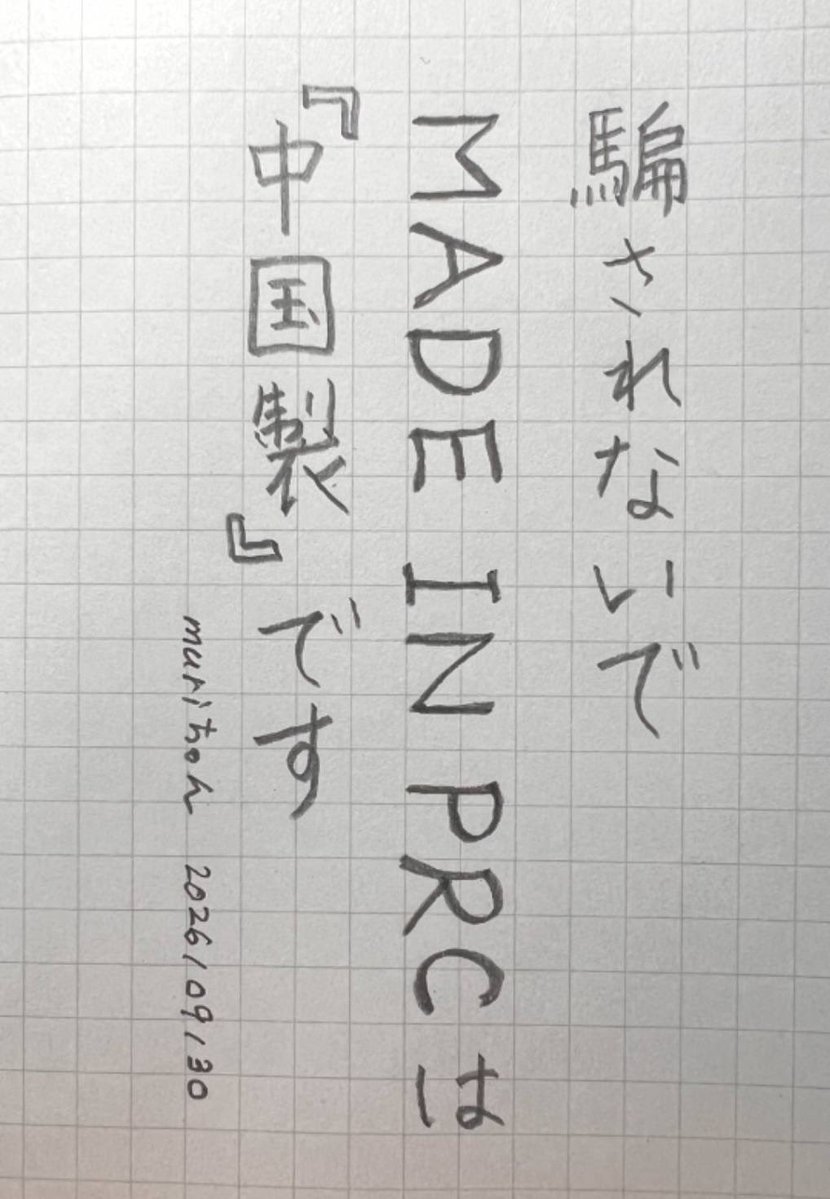 騙されないで
MADE IN PRCは
『中国製』です
muriちゃん 2026/09/30